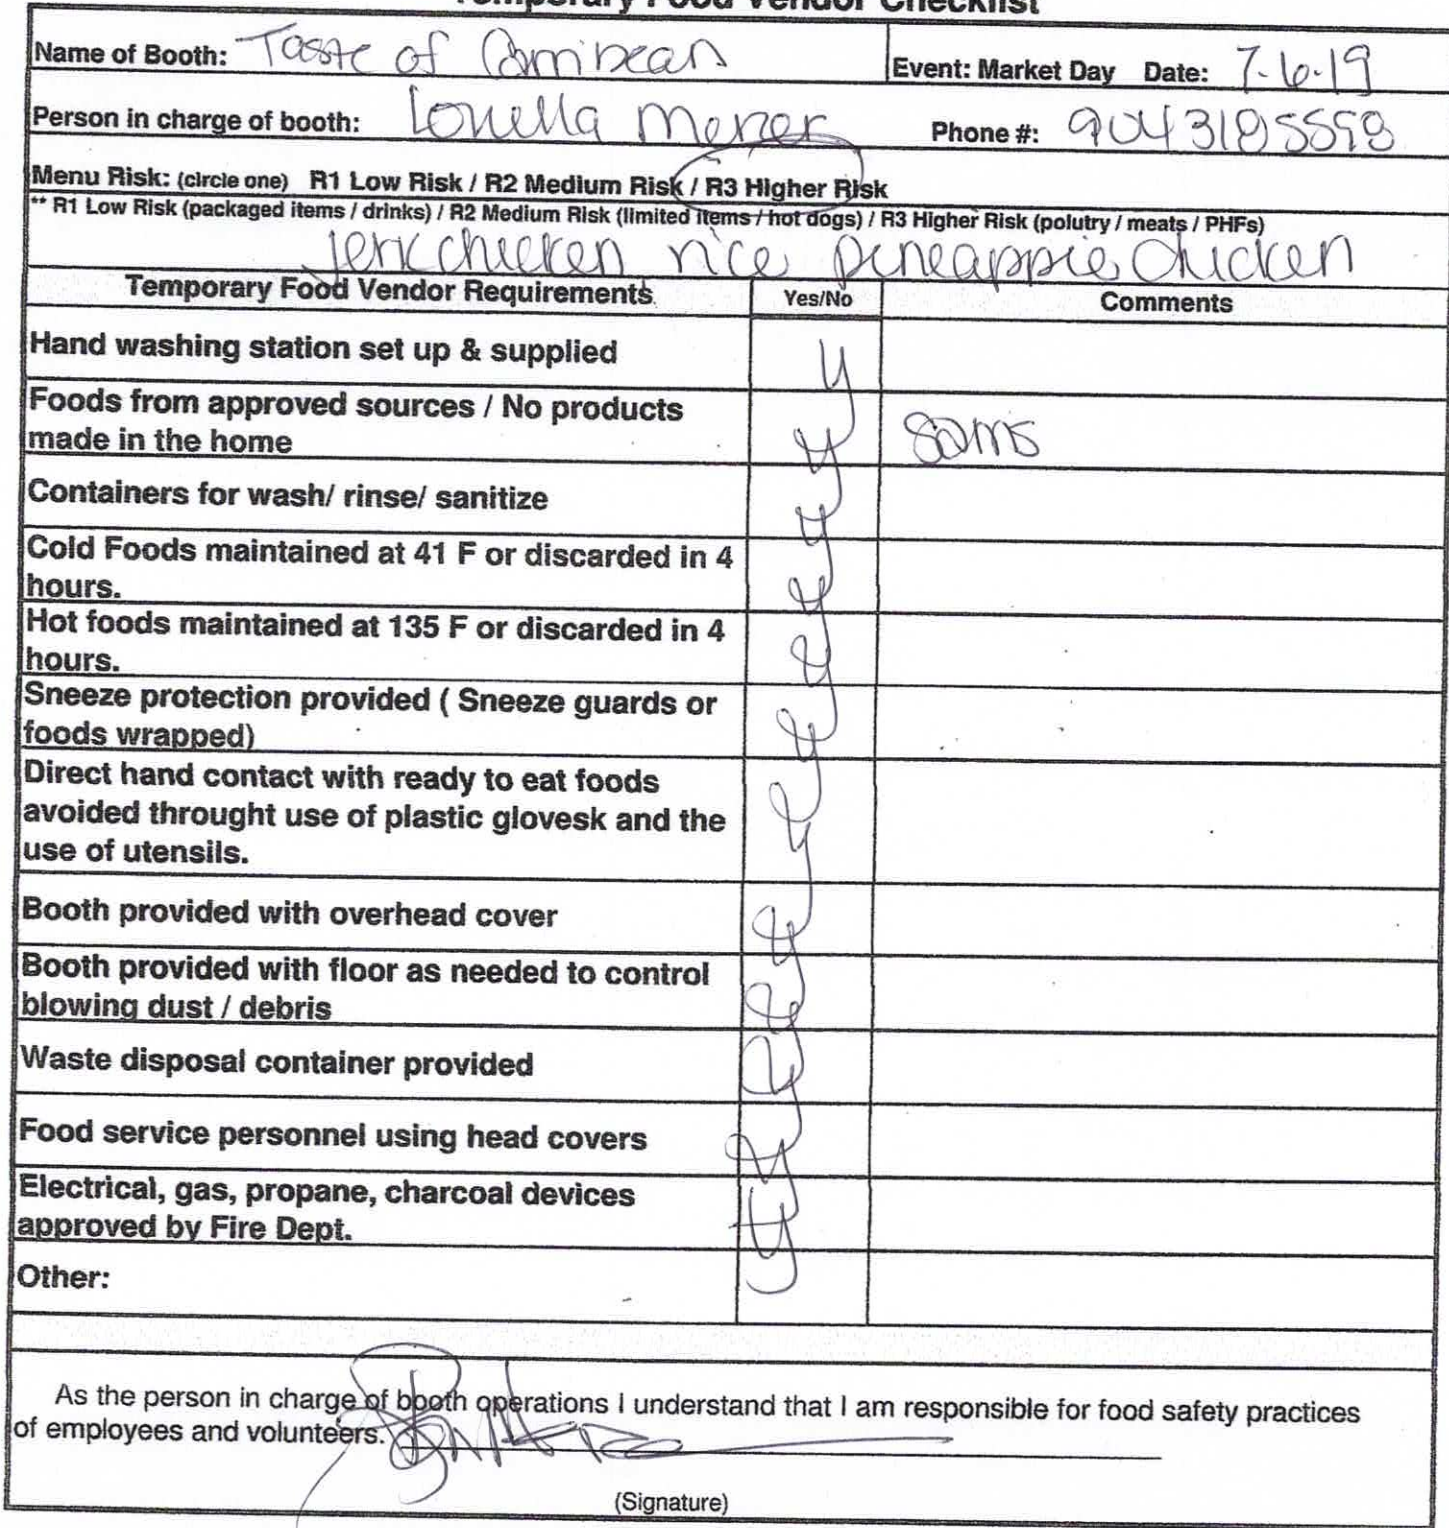 Temporary Food Vendor Checklist
Name of Booth: Taste of Carribean Event: Market Day Date: 7-6-19
Person in charge of booth: Phone #:
Menu Risk: (circle one) R1 Low Risk / R2 Medium Risk / R3 Higher Risk
** R1 Low Risk (packaged items / drinks) / R2 Medium Risk (limited items / hot dogs) / R3 Higher Risk (polutry / meats / PHFs)
jerk chicken rice pineapple chicken
Temporary Food Vendor Requirements Yes/No Comments
Hand washing station set up & supplied y
Foods from approved sources / No products
made in the home y Sams
Containers for wash/ rinse/ sanitize y
Cold Foods maintained at 41 F or discarded in 4
hours. y
Hot foods maintained at 135 F or discarded in 4
hours. y
Sneeze protection provided ( Sneeze guards or
foods wrapped) y
Direct hand contact with ready to eat foods
avoided throught use of plastic glovesk and the
use of utensils. y
Booth provided with overhead cover y
Booth provided with floor as needed to control
blowing dust / debris y
Waste disposal container provided y
Food service personnel using head covers y
Electrical, gas, propane, charcoal devices
approved by Fire Dept. y
Other:
As the person in charge of booth operations I understand that I am responsible for food safety practices
of employees and volunteers.
(Signature)